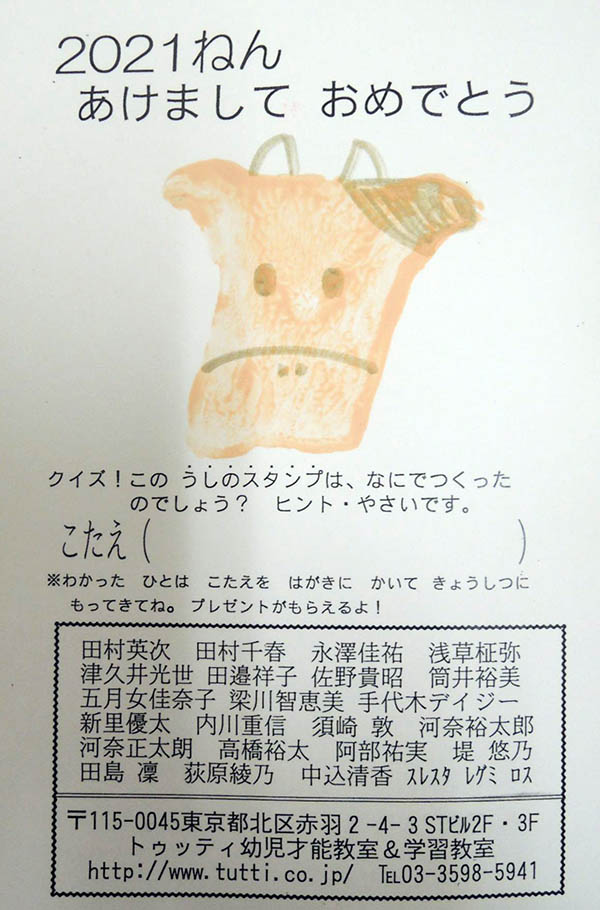 2021ねん
あけまして おめでとう
クイズ!この うしのスタンプは、なにでつくった
のでしょう? ヒント・やさいです。
こたえ( )
※わかった ひとは こたえを はがきに かいて きょうしつに
もってきてね。 プレゼントがもらえるよ!
田村英次 田村千春 永澤佳祐 浅草柾弥
津久井光世 田邉祥子 佐野貴昭 筒井裕美
五月女佳奈子 梁川智恵美 手代木デイジー
新里優太 内川重信 須崎 敦 河奈裕太郎
河奈正太朗 高橋裕太 阿部祐実 堤 悠乃
田島 凜 荻原綾乃 中込清香 ｽﾚｽﾀ ﾚｸﾞﾐ ﾛｽ
〒115-0045東京都北区赤羽2-4-3 STﾋﾞﾙ2F・3F
トゥッティ幼児才能教室&学習教室
http://www.tutti.co.jp/ TEL03-3598-5941